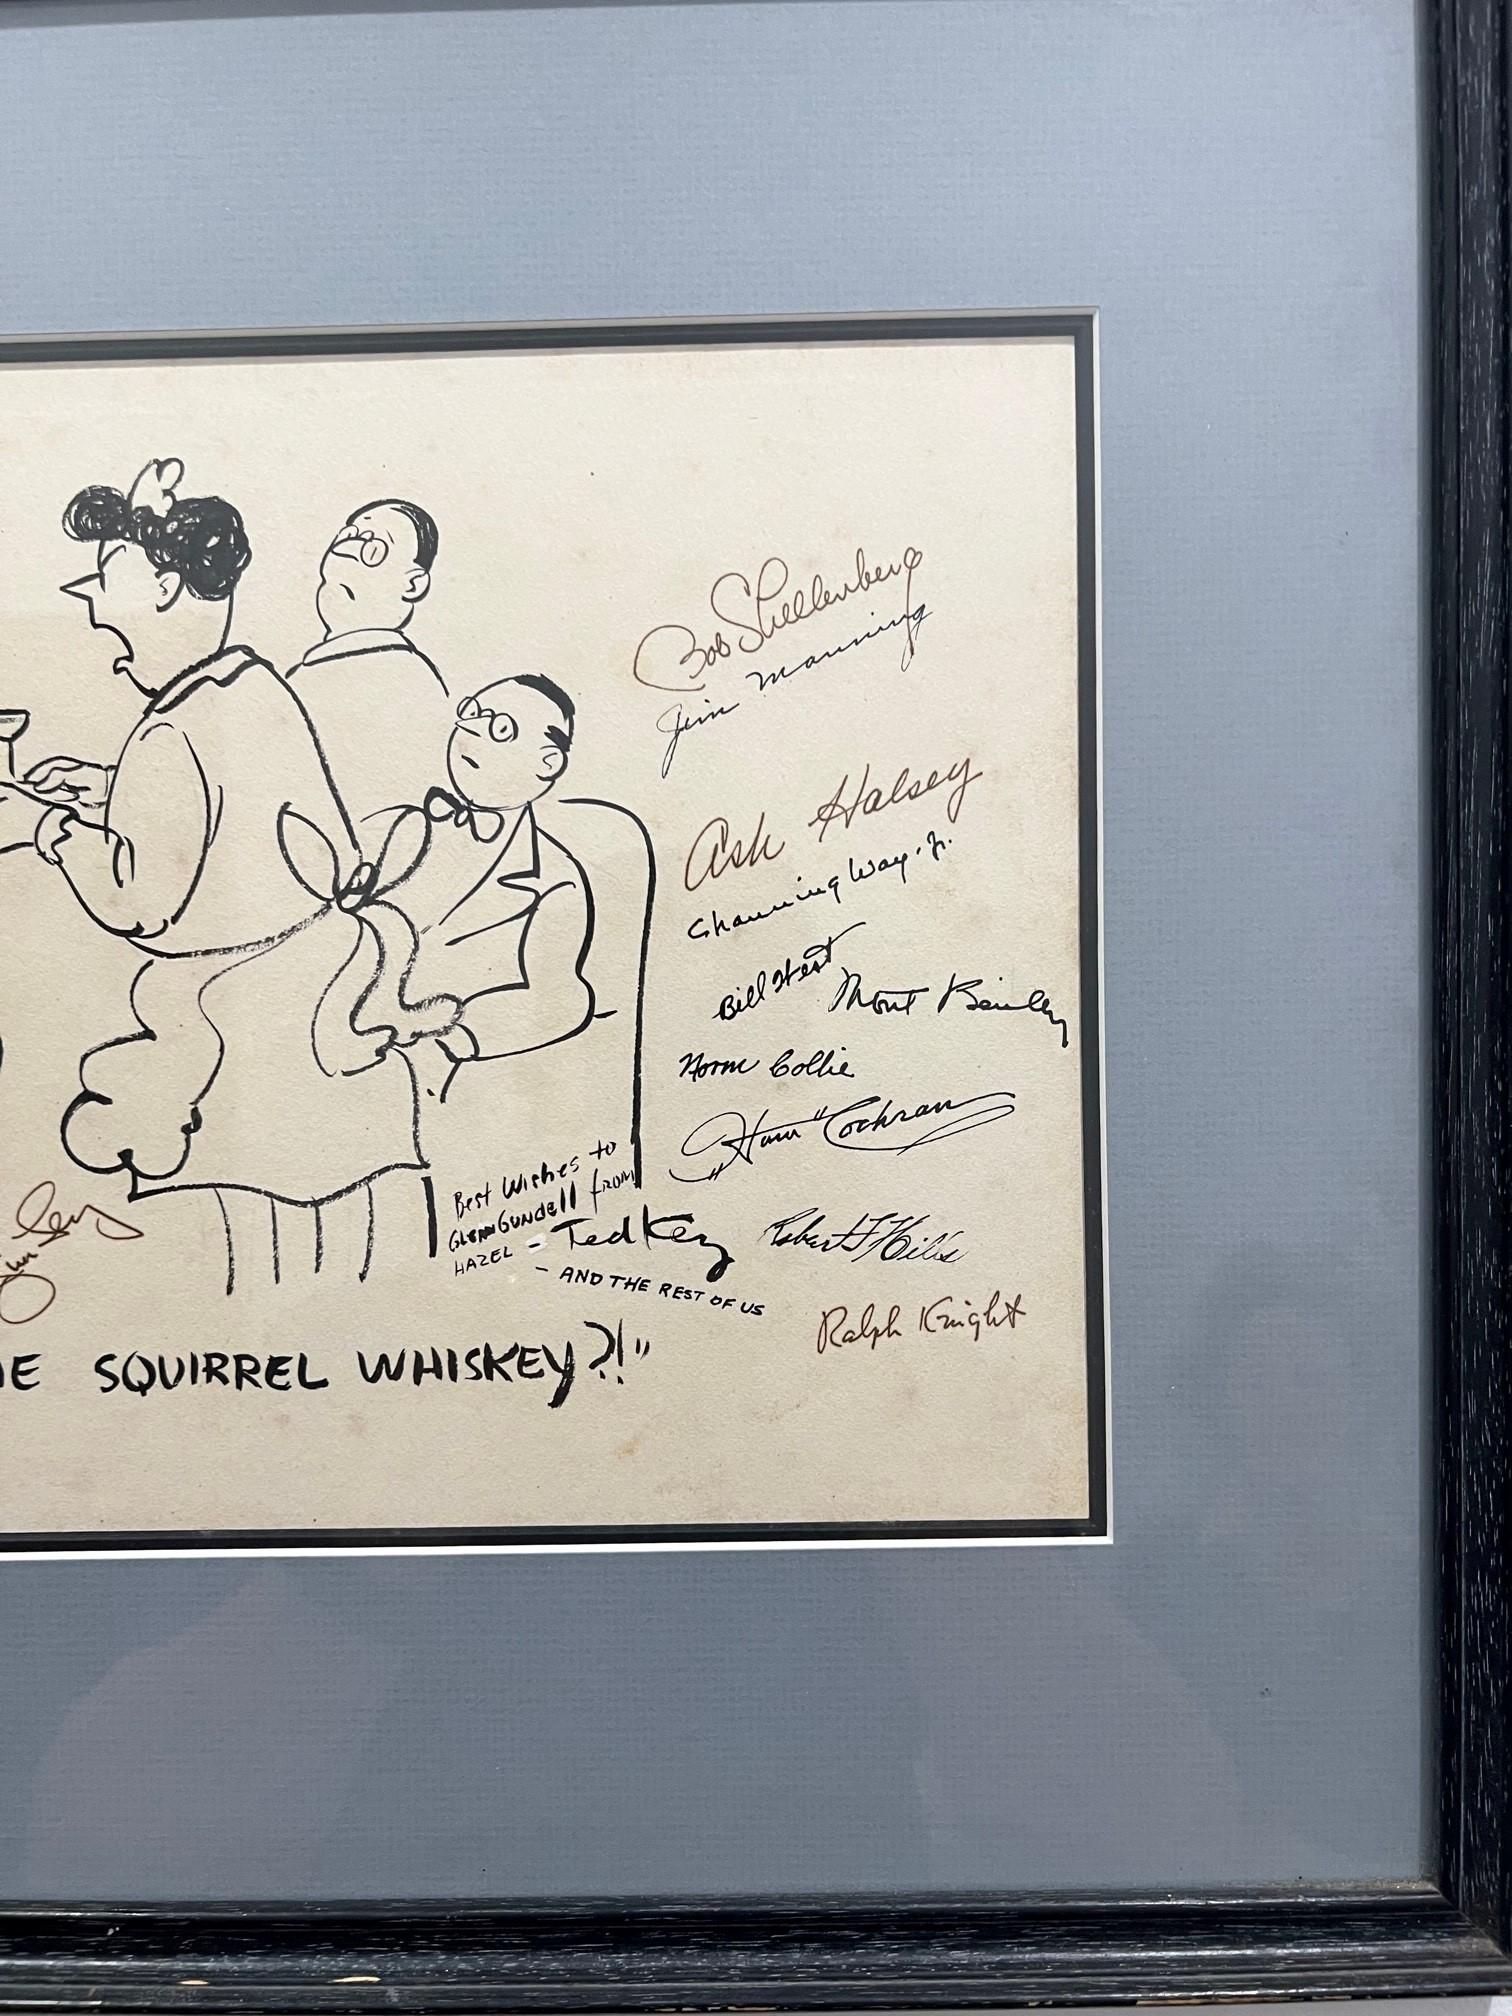 Bob Shellenberg
Jim Manning
Ash Halsey
Channing Way. Jr.
Bill West
Mont
Norm Collie
"Ham" Cochran
Best Wishes to
Glenn Gundell from
HAZEL - Ted Key
- AND THE REST OF US
Robert F Hills
Ralph Knight
SQUIRREL WHISKEY?!"